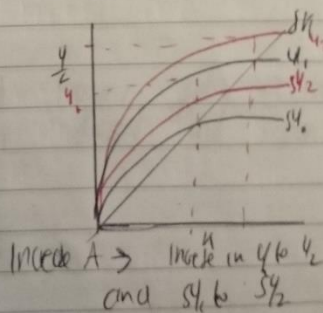 y
L
y₂
δK
y₁
sy₂
sy₁
K
Increase A → Increase in y to y₂
and sy₁ to sy₂